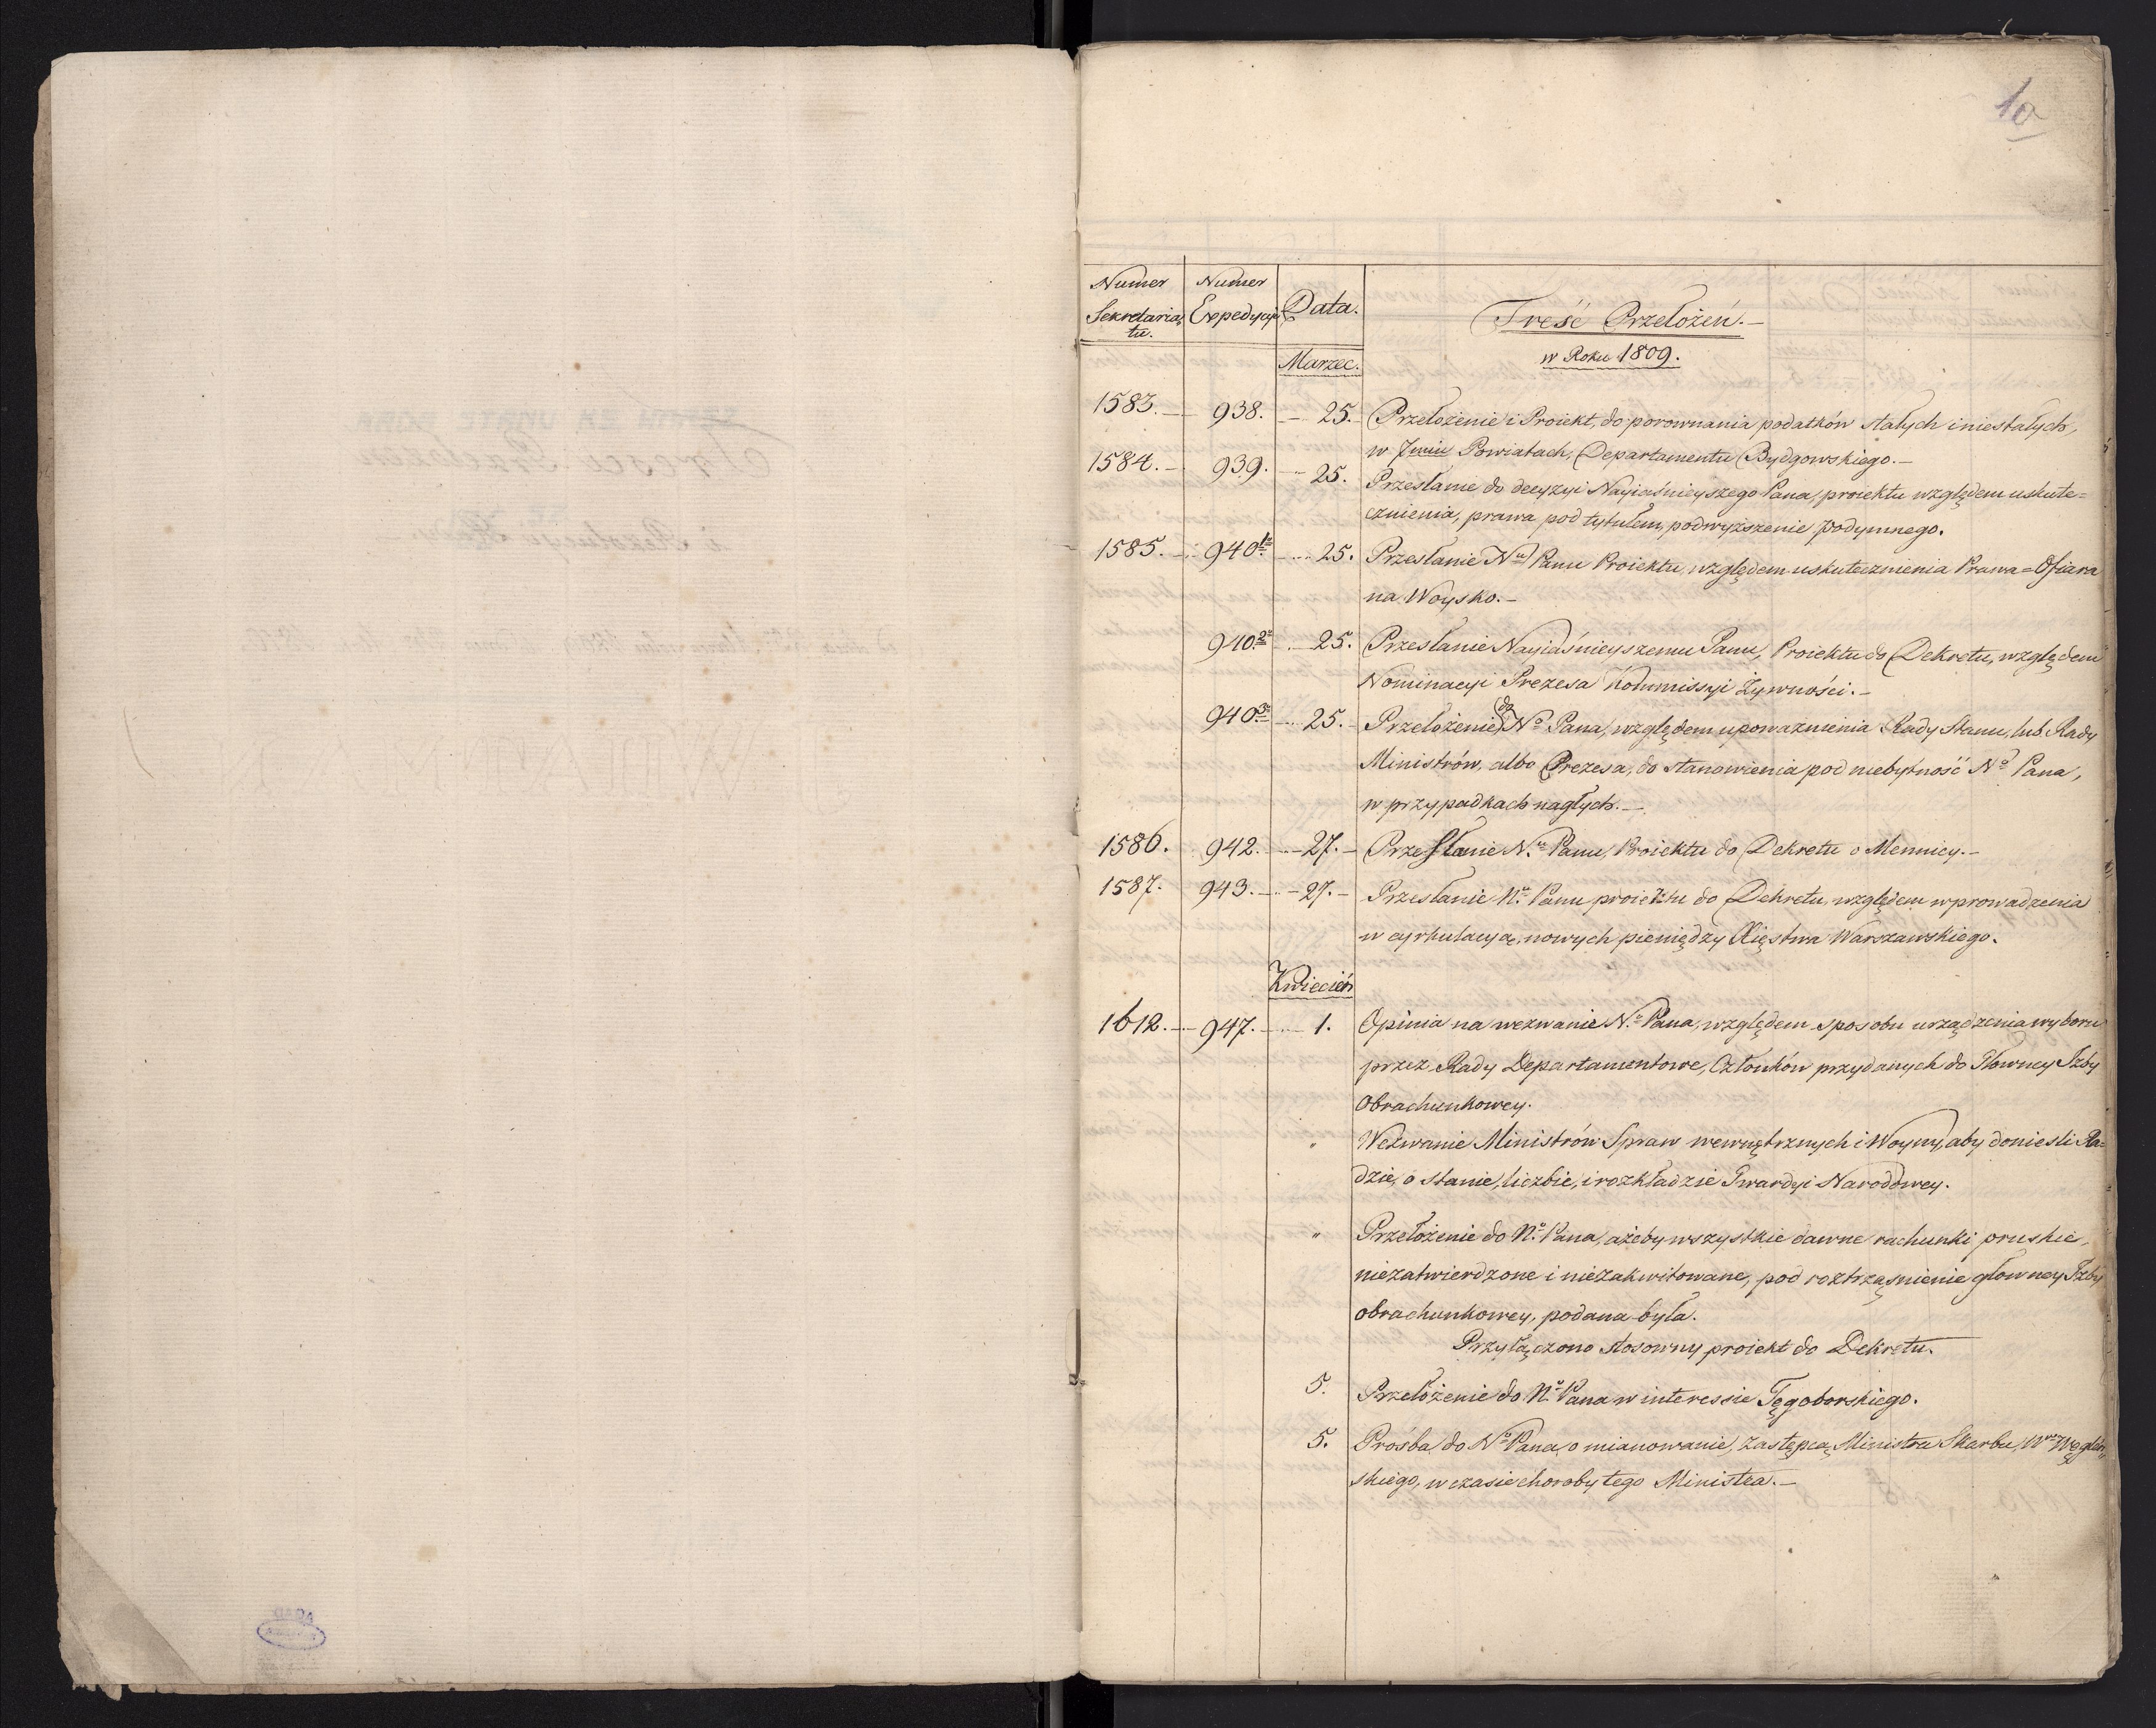 1a
Numer Sekretaria, tu.
Numer Expedycyi
Data.
Treść Przełożeń.—
w Roku 1809.
Marzec.
1583.— 938. — 25.— Przełożenie i Proiekt, do porownania podatków stałych i niestałych,
w 7miu Powiatach, Departamentu Bydgowskiego.—
1584.— 939. — 25. Przesłanie do decyzyi Nayiaśnieyszego Pana, proiektu względem uskute=
cznienia, prawa pod tytułem, podwyższenie podymnego.
1585.— 940.1o — 25. Przesłanie Nu Panu Proiektu, względem uskutecznienia Prawa = Ofiara
na Woysko.—
940.2o — 25. Przesłanie Nayiaśnieyszemu Panu, Proiektu do Dekretu, względem
Nominacyi Prezesa Kommissyi Żywności.—
940.3o — 25.— Przełożenie do No Pana, względem upoważnienia Rady Stanu, lub Rady
Ministrów, albo Prezesa, do stanowienia pod niebytność No Pana,
w przypadkach nagłych.—
1586. 942. — 27.— Przesłanie N.u Panu, Proiektu do Dekretu o Mennicy.—
1587. 943.— — 27.— Przesłanie N.u Panu proiektu do Dekretu, względem wprowadzenia
w cyrkulacyą, nowych pieniędzy Xięstwa Warszawskiego.
Kwiecień
1612.— 947.— 1. Opinia na wezwanie N.o Pana, względem sposobu urządzenia wyboru
przez Rady Departamentowe, Członków przydanych do Głowney Izby
Obrachunkowey.
" Wezwanie Ministrów Spraw wewnętrznych i Woyny, aby donieśli Ra=
dzie, o stanie, liczbie, i rozkładzie Gwardyi Narodowey.
" Przełożenie do N.o Pana, ażeby wszystkie dawne rachunki pruskie,
niezatwierdzone i niezakwitowane, pod roztrząsnienie głowney Izby
obrachunkowey, podana była.
Przyłączono stosowny proiekt do Dekretu.
5. Przełożenie do N.o Pana w interessie Tęgoborskiego.
5. Prośba do No Pana, o mianowanie, zastępcą Ministra Skarbu, Wgo Węgleń,,
skiego, w czasie choroby tego Ministra.—